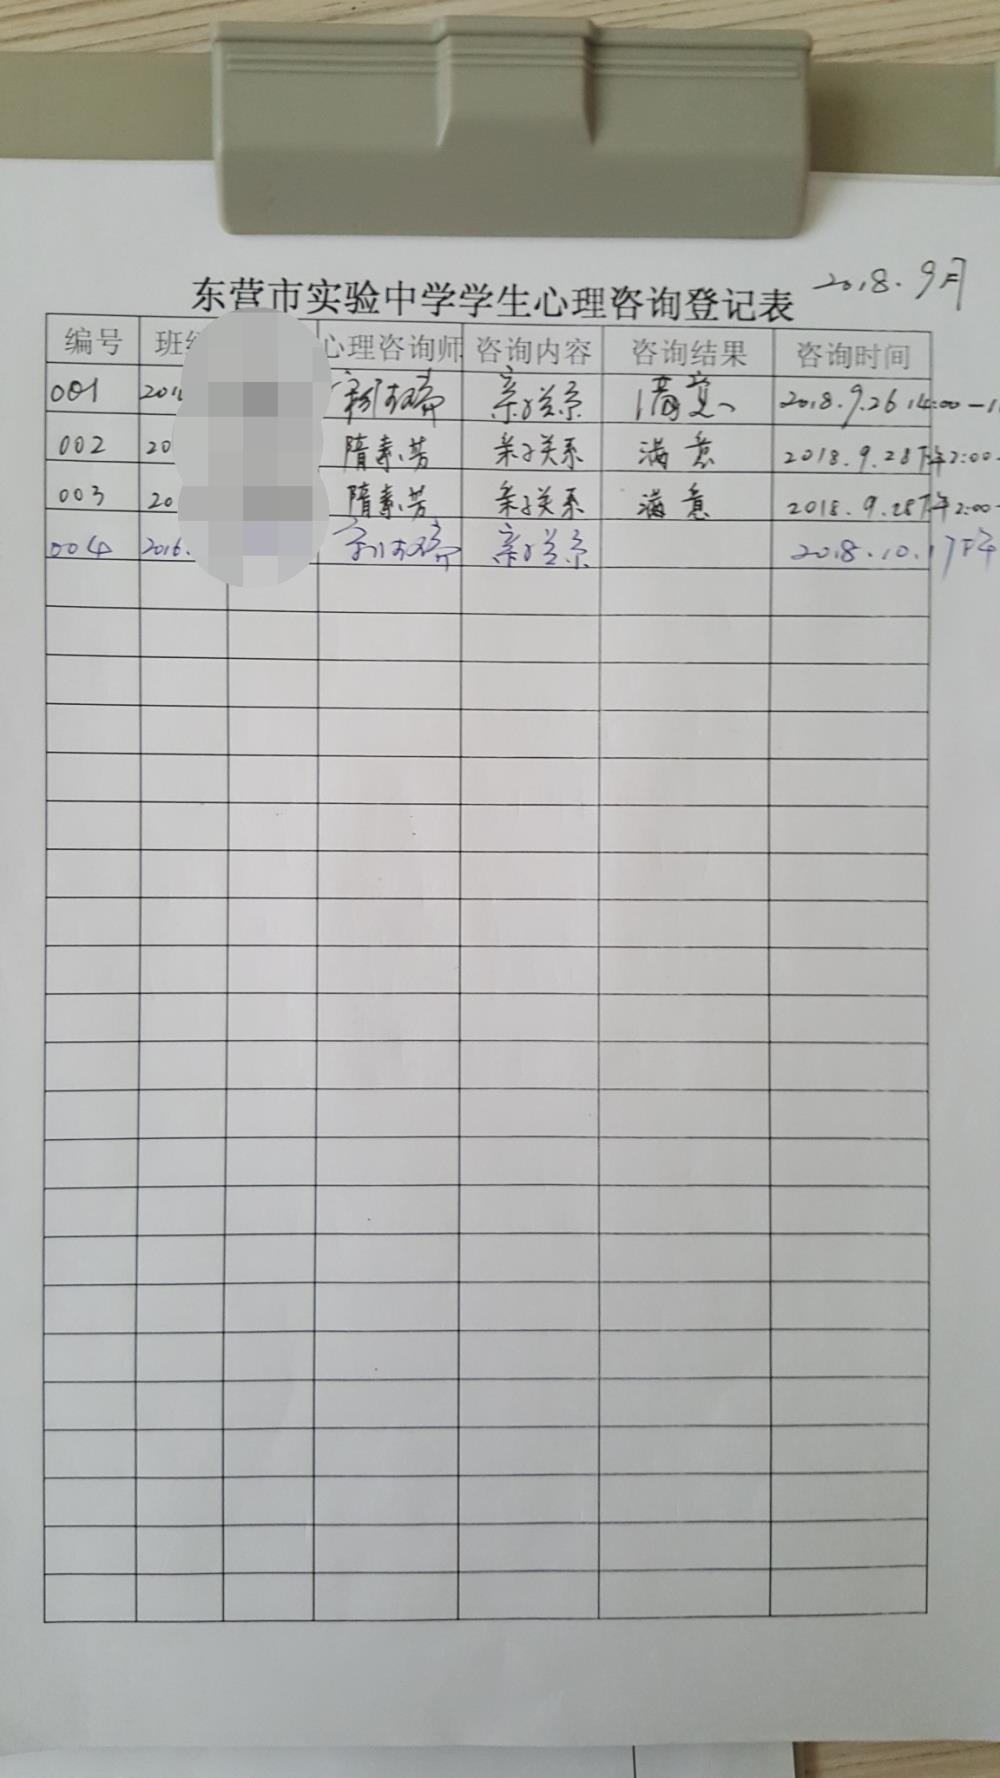 东营市实验中学学生心理咨询登记表 2018.9月
编号 班级 心理咨询师 咨询内容 咨询结果 咨询时间
001 201 亲子关系 满意 2018.9.26 14:00-1
002 20 隋素芳 亲子关系 满意 2018.9.28下午2:00-
003 20 隋素芳 亲子关系 满意 2018.9.28下午2:00-
004 2016. 亲子关系 2018.10.17下午